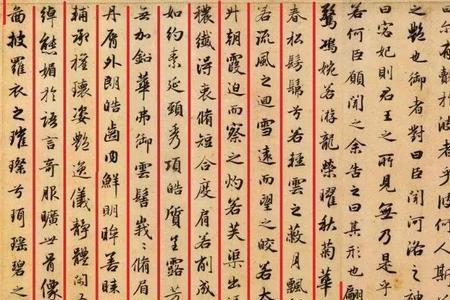 尔有覿於彼者乎彼何人斯
之艷也御者對曰臣聞河洛之神
曰宓妃則君王之所見無乃是乎
若何臣願聞之余告之曰其形也翩
驚鴻婉若游龍榮曜秋菊華
春松髣髴兮若輕雲之蔽月飄
若流風之迴雪遠而望之皎若太
升朝霞迫而察之灼若芙蕖出
穠纖得衷脩短合度肩若削成
如約素延頸秀項皓質呈露芳
無加鉛華弗御雲髻峩〻脩眉
丹脣外朗皓齒内鮮明眸善睞
輔承權瓌姿艷逸儀靜體閑
綽態媚於語言奇服曠世骨像
圖披羅衣之璀璨兮珥瑤碧之